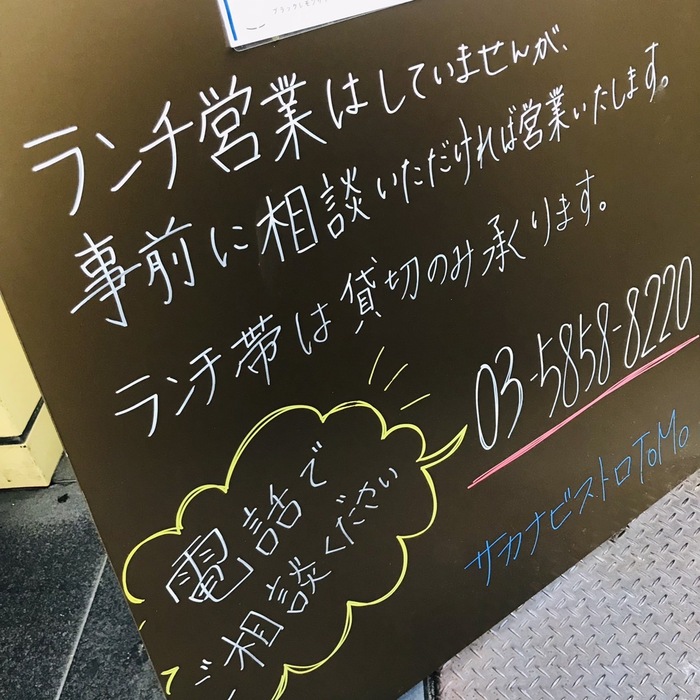 ランチ営業はしていませんが、
事前に相談いただければ営業いたします。
ランチ帯は貸切のみ承ります。
03-5858-8220
電話で
ご相談ください
サカナビストロTOMO